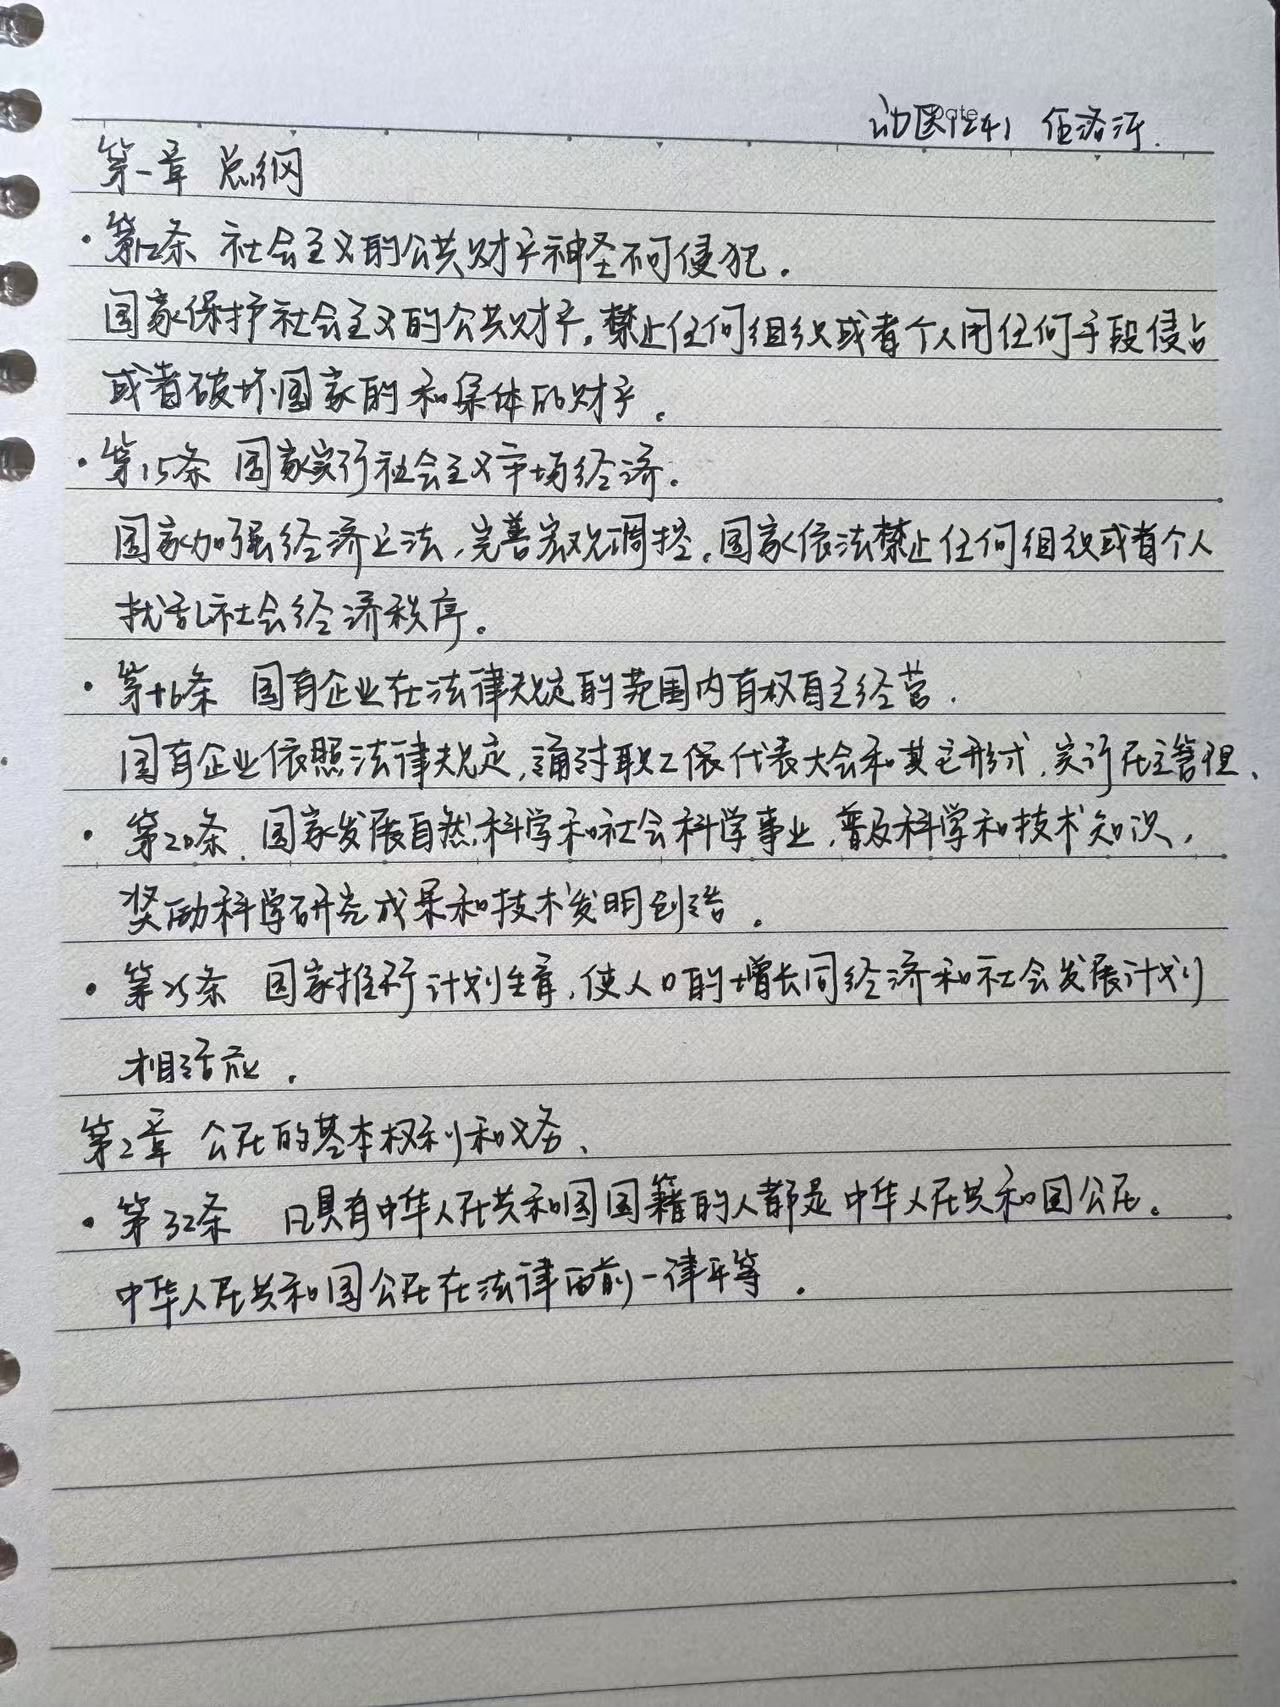 Date
动医1241 任洛沂.
第一章 总纲
·第12条 社会主义的公共财产神圣不可侵犯.
国家保护社会主义的公共财产。禁止任何组织或者个人用任何手段侵占
或者破坏国家的和集体的财产。
·第15条 国家实行社会主义市场经济.
国家加强经济立法,完善宏观调控。国家依法禁止任何组织或者个人
扰乱社会经济秩序。
·第16条 国有企业在法律规定的范围内有权自主经营.
国有企业依照法律规定,通过职工代表大会和其它形式,实行民主管理、
·第20条. 国家发展自然科学和社会科学事业,普及科学和技术知识,
奖励科学研究成果和技术发明创造。
·第25条 国家推行计划生育,使人口的增长同经济和社会发展计划
相适应.
第2章 公民的基本权利和义务、
·第32条 凡具有中华人民共和国国籍的人都是中华人民共和国公民。
中华人民共和国公民在法律面前一律平等.